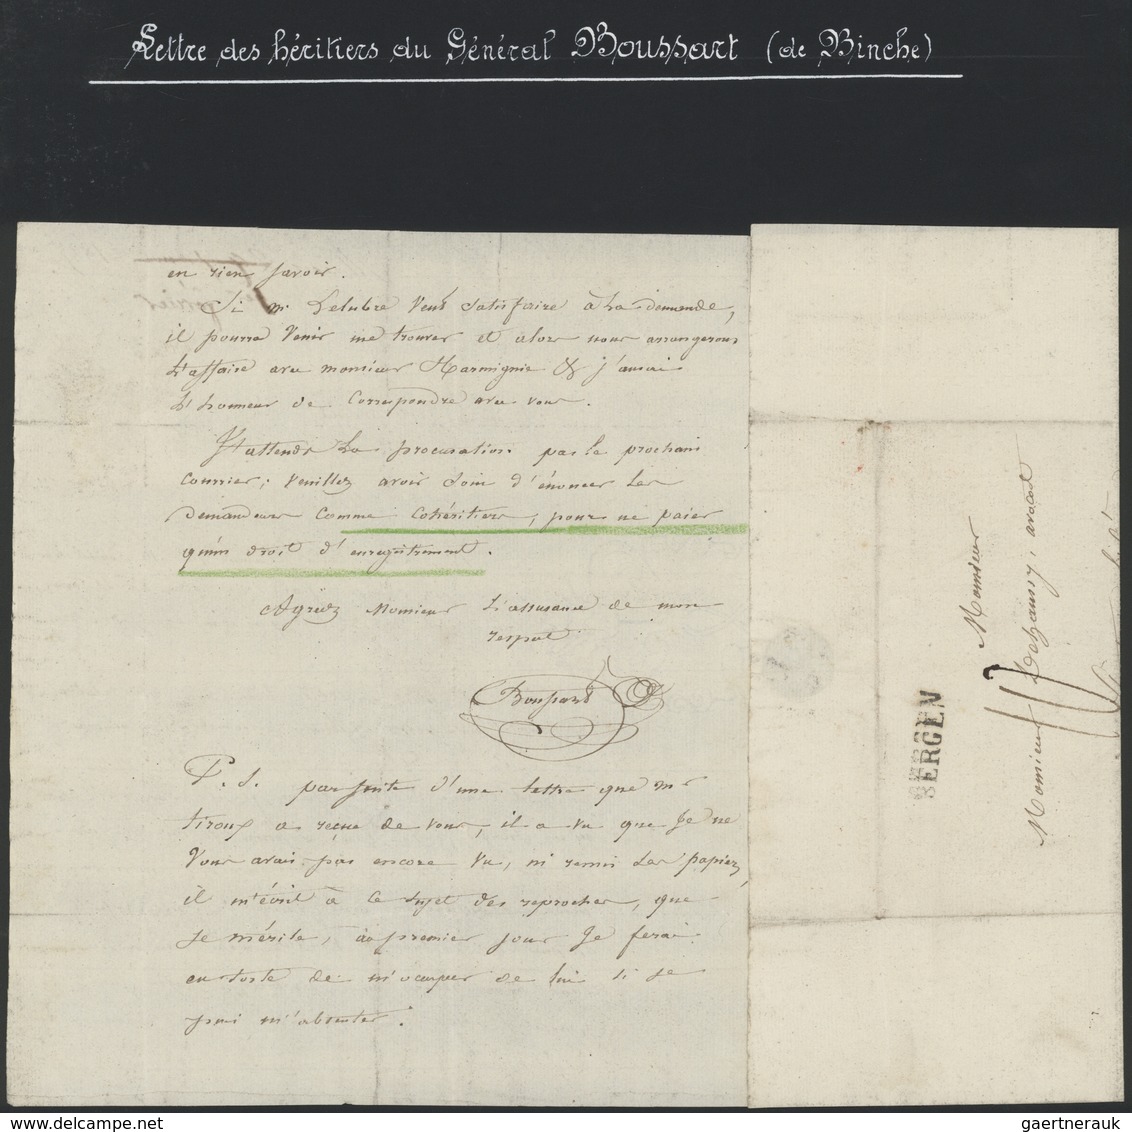 Lettre des héritiers du Général Boussart (de Binche)
en rien savoir.
Si mr Delubre Veut Satisfaire à La demande,
il pourra Venir me trouver et alors nous arrangerons
L'affaire avec monsieur Harmignie & j'aurai
L'honneur de Correspondre avec vous.
J'attends La procuration par le prochain
Courrier; Veuillez avoir Soin d'énoncer Les
demandeurs Comme Cohéritiers, pour ne paier
qu'un droit d'enregistrement.
Agréez Monsieur L'assurance de mon
respect
Boussard
P. S. par suite d'une lettre que mr
tiroux a reçue de vous, il a vu que Je ne
Vous avais pas encore Vu, ni remis Les papiers,
il m'écrit à Ce Sujet des reproches, que
Je mérite, au premier jour Je ferai
en sorte de m'occuper de lui si je
puis m'absenter.
BERGEN
Monsieur
Monsieur Dehaussy, avocat
gaertnerauk